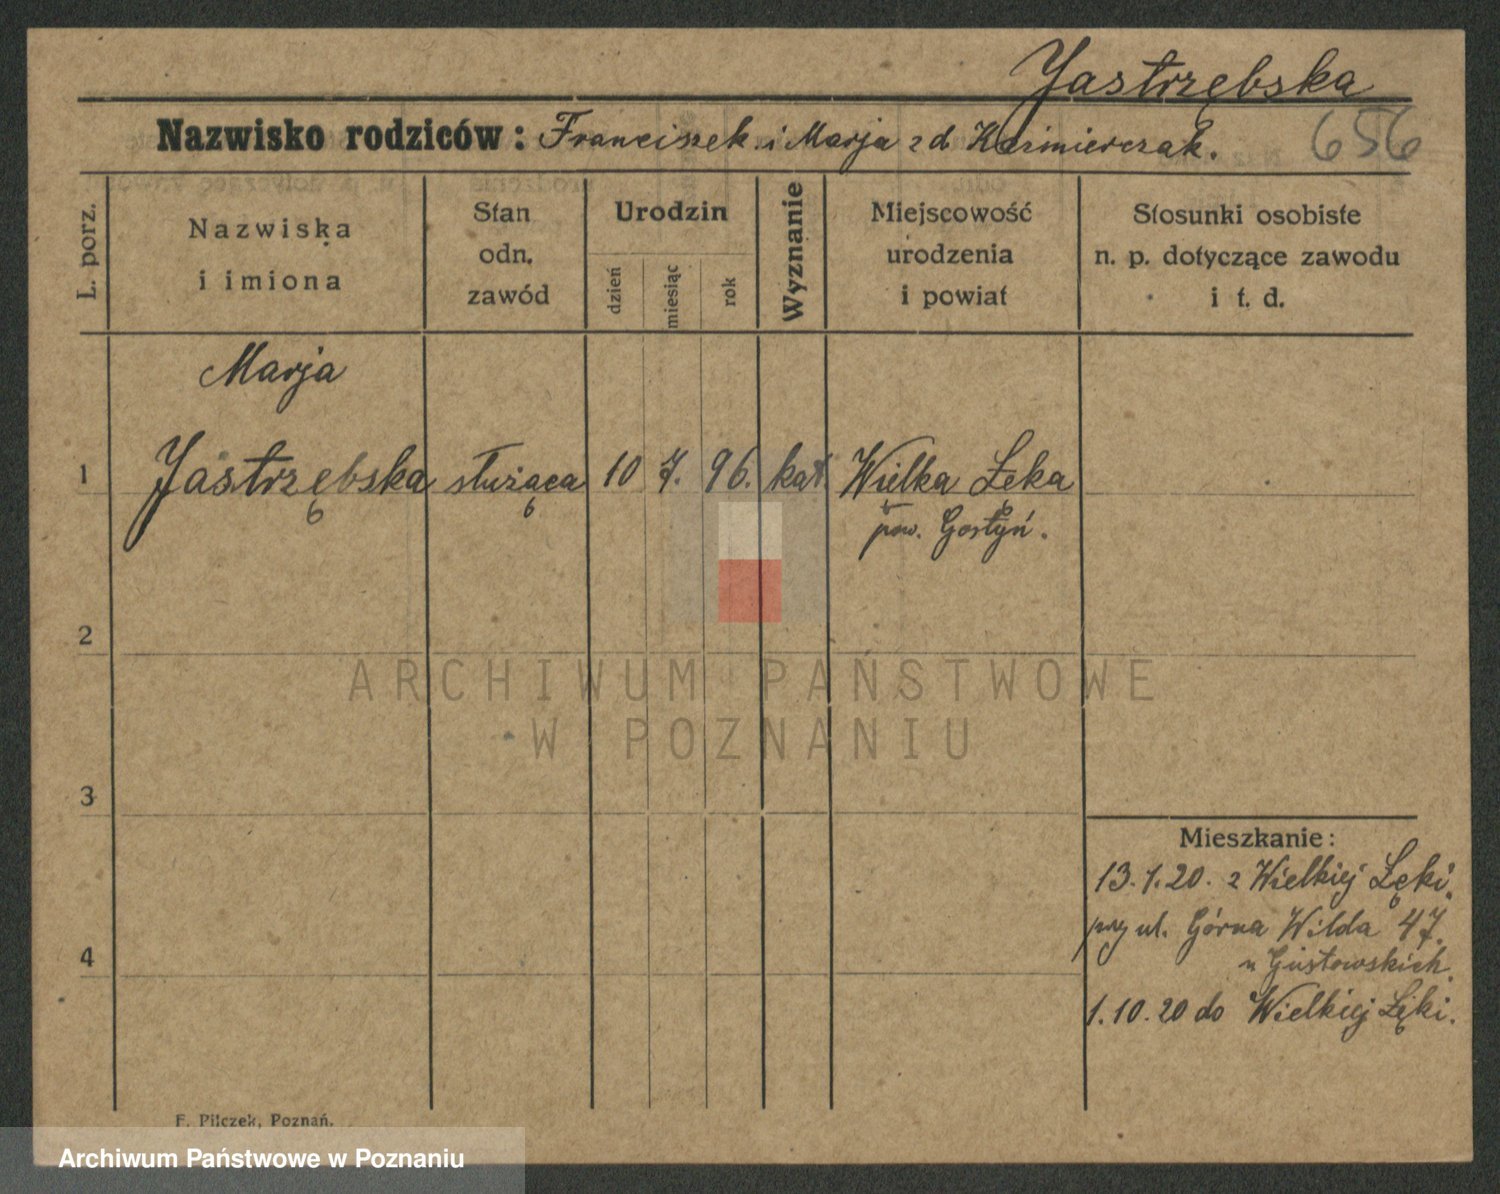 Jastrzębska
Nazwisko rodziców: Franciszek i Marja z d Kaźmierczak.
656
L. porz.
Nazwiska
i imiona
Stan
odn.
zawód
Urodzin
dzień
miesiąc
rok
Wyznanie
Miejscowość
urodzenia
i powiat
Stosunki osobiste
n. p. dotyczące zawodu
i t. d.
Marja
1 Jastrzębska służąca 10 7. 96. kat. Wielka Łęka
pow. Gostyń.
2
ARCHIWUM PAŃSTWOWE
W POZNANIU
3
Mieszkanie:
13.1.20. z Wielkiej Łęki.
przy ul. Górna Wilda 47.
u Gustowskich.
4
1.10.20 do Wielkiej Łęki.
F. Pilczek, Poznań.
Archiwum Państwowe w Poznaniu